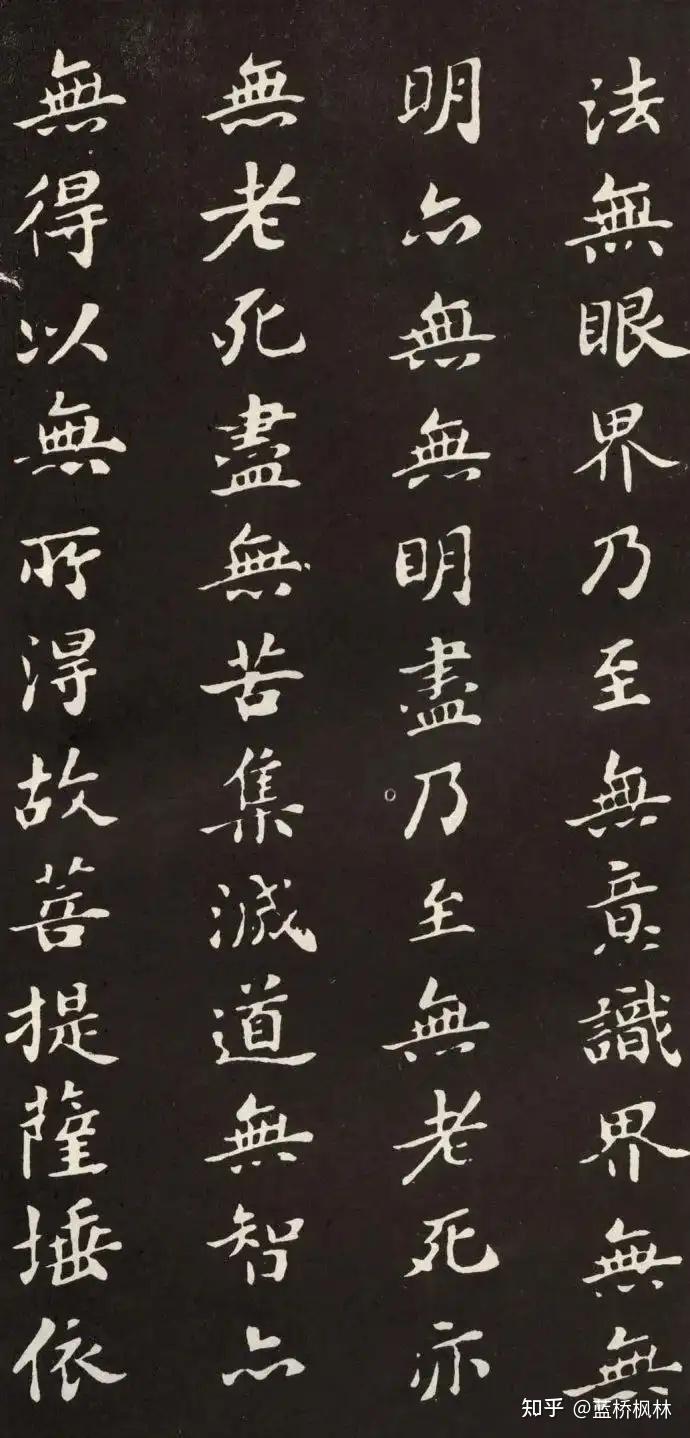 法無眼界乃至無意識界無無
明亦無無明盡乃至無老死亦
無老死盡無苦集滅道無智亦
無得以無所得故菩提薩埵依
知乎 @蓝桥枫林